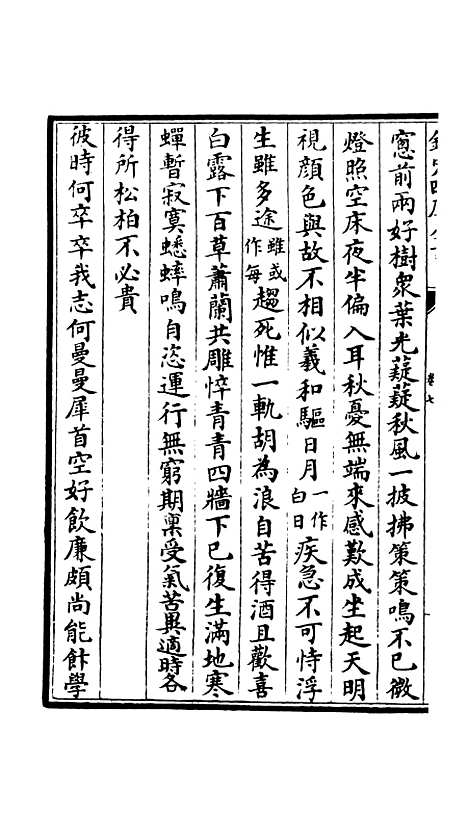 窻前兩好樹衆葉光薿薿秋風一披拂策策鳴不已微
燈照空床夜半偏入耳秋憂無端來感歎成坐起天明
視顔色與故不相似羲和驅日月一作白日疾急不可恃浮
生雖多途雖或作每趨死惟一軌胡為浪自苦得酒且歡喜
白露下百草蕭蘭共雕悴青青四牆下已復生滿地寒
蟬暫寂寞蟋蟀鳴自恣運行無窮期稟受氣苦異適時各
得所松柏不必貴
彼時何卒卒我志何曼曼犀首空好飲廉頗尚能飰學